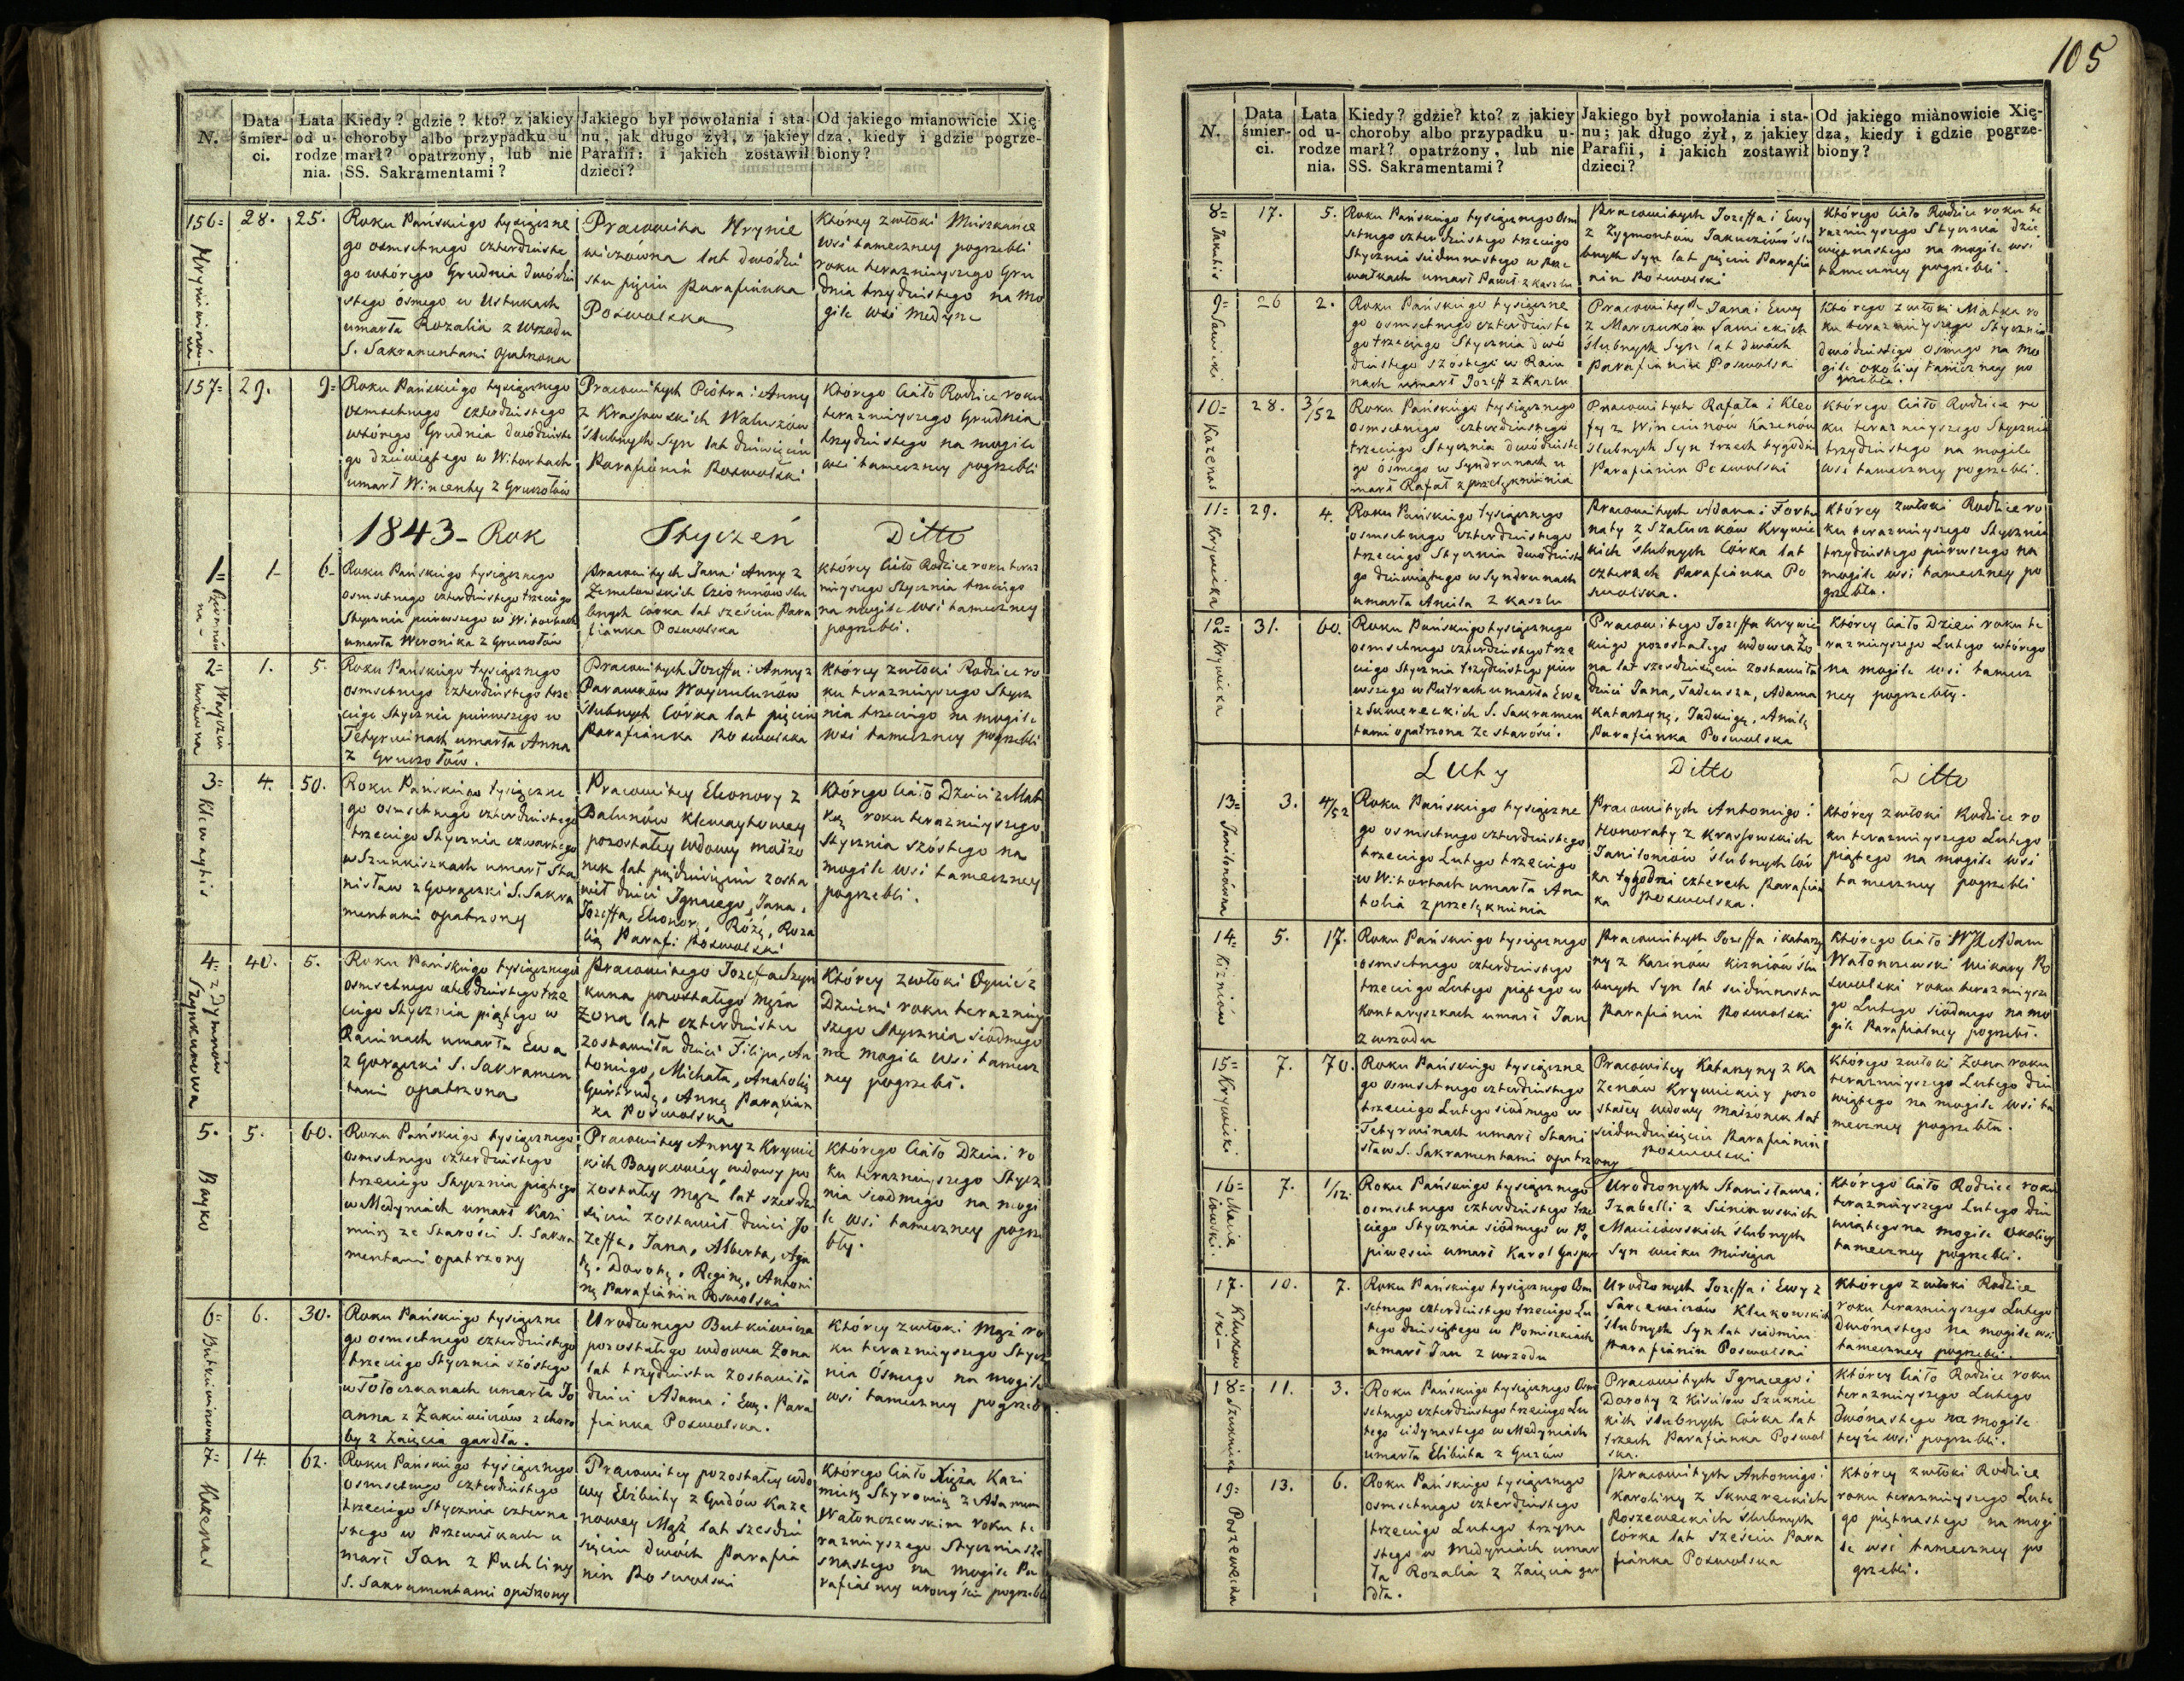 N.
Data śmierci.
Lata od urodzenia.
Kiedy? gdzie? kto? z jakiey
choroby albo przypadku u-
marł? opatrzony, lub nie
SS. Sakramentami?
Jakiego był powołania i sta-
nu, jak długo żył, z jakiey
Parafii: i jakich zostawił
dzieci?
Od jakiego mianowicie Xię-
dza, kiedy i gdzie pogrze-
biony?
156=
28.
25.
Roku Pańskiego tysiączne
go osmsetnego czterdzieste
go wtórego Grudnia dwódzie
stego ósmego w Ustukach
umarła Rozalia z wrzodu
S. Sakramentami opatrzona
Pracowita Hrynie
wiczówna lat dwódzie
stu pięciu parafianka
Poswolska
Którey zwłoki Mieszkańce
wsi tameczney pogrzebli
roku terazniejszego Gru
dnia trzydziestego na mo
gile wsi Medyne
157=
29.
9=
Roku Pańskiego tysiącznego
osmsetnego czterdziestego
wtórego Grudnia dwódzieste
go dziewiątego w Witortach
umarł Wincenty z Gruczołów
Pracowitych Piotra i Anny
z Krassowskich Waluszów
ślubnych Syn lat dziewięciu
Parafianin Poswolski
Którego Ciało Rodzice roku
terazniejszego Grudnia
trzydziestego na mogile
wsi tameczney pogrzebli
1843 - Rok
Styczeń
Ditto
1=
1-
6-
Roku Pańskiego tysiącznego
osmsetnego czterdziestego trzeciego
Stycznia pierwszego w Witortach
umarła Weronika z Gruczołów
Pracowitych Jana i Anny z
lat sześciu Para
fianka Poswolska
Którey Ciało Rodzice roku teraz
nieyszego Stycznia trzeciego
na mogile wsi tameczney
pogrzebli.
2=
1.
5.
Roku Pańskiego tysiącznego
osmsetnego czterdziestego trze
ciego Stycznia pierwszego w
Tetyrwinach umarła Anna
z Gruczołów.
Pracowitych Jozeffa i Anny z
ślubnych Córka lat pięciu
Parafianka Poswolska
Którey zwłoki Rodzice ro
ku terazniejszego Stycz
nia trzeciego na mogile
wsi tameczney pogrzebli
3=
Klewaytis
4.
50.
Roku Pańskiego tysiączne
go osmsetnego czterdziestego
trzeciego Stycznia czwartego
w Szunkiszkach umarł Sta
nisław z Gorączki S. Sakra
mentami opatrzony
Pracowitey Eleonory z
Balunów Klewaytowey
pozostałey wdowy małżo
nek lat piędziesięciu zosta
wił dzieci Ignacego, Jana,
Jozeffa, Eleonorę, Różę, Roza
lię Parafi Poswolski
Którego Ciało Dzieci z Mat
ką roku terazniejszego
Stycznia szóstego na
mogile wsi tameczney
pogrzebli.
4=
40.
5.
Roku Pańskiego tysiącznego
osmsetnego czterdziestego trze
ciego Stycznia piątego w
Rainach umarła Ewa
z Gorączki S. Sakramen
tami opatrzona
Pracowitego Jozefa Szym
kuna pozostałego męża
Żona lat czterdziestu
zostawiła dzieci Filipa, An
toniego, Michała, Anatolię
Gertrudę, Annę Parafian
ka Poswolska
Którey zwłoki Oyciec z
Dziećmi roku terazniey
szego Stycznia siódmego
na mogile wsi tamecz
ney pogrzebł.
5.
Bayko
5.
60.
Roku Pańskiego tysiącznego
osmsetnego czterdziestego
trzeciego Stycznia piątego
w Medyniach umarł Kazi
mierz ze Starości S. Sakra
mentami opatrzony
Pracowitey Anny z Krywic
kich Baykowéy wdowy po
zostałey Mąż lat szesdzie
sięciu zostawił dzieci Jo
zeffa, Jana, Alberta, Aga
tę, Dorotę, Reginę, Antoni
nę Parafianin Poswolski
Którego Ciało Dzieci ro
ku terazniejszego Stycz
nia siódmego na mogi
le wsi tameczney pogrze
bły.
6=
6.
30.
Roku Pańskiego tysiączne
go osmsetnego czterdziestego
trzeciego Stycznia szóstego
umarła Jo
anna z Jakiewiczów z choro
by z Zaięcia gardła.
Urodzonego Butkiewicza
pozostałego wdowca Żona
lat trzydziestu zostawiła
dzieci Adama i Ewę. Para
fianka Poswolska.
Którey zwłoki Mąż ro
ku terazniejszego Stycz
nia Ósmego na mogile
wsi tameczney pogrzebł
7=
Kazenas
14.
62.
Roku Pańskiego tysiącznego
osmsetnego czterdziestego
trzeciego Stycznia czterna
stego w Przewałkach u
marł Jan z Puchliny
S. Sakramentami opatrzony
Pracowitey pozostałey wdo
wy Elżbiety z Gudów Kaze
nowey Mąż lat szesdzie
sięciu dwóch Parafia
nin Poswolski
Którego Ciało Xiąża Kazi
mierz Styrowicz z Adamem
Wałonczewskim roku te
razniejszego Stycznia sze
snastego na mogile Pa
rafialney uroczyście pogrzebli
105
N.
Data śmierci.
Lata od urodzenia.
Kiedy? gdzie? kto? z jakiey
choroby albo przypadku u-
marł? opatrzony, lub nie
SS. Sakramentami?
Jakiego był powołania i sta-
nu; jak długo żył, z jakiey
Parafii, i jakich zostawił
dzieci?
Od jakiego mianowicie Xię-
dza, kiedy i gdzie pogrze-
biony?
8=
17.
5.
Roku Pańskiego tysiącznego osm
setnego czterdziestego trzeciego
Stycznia siedmnastego w Prze
wałkach umarł Paweł z kaszlu
Pracowitych Jozeffa i Ewy
z Zygmontów Jakuciów ślu
bnych Syn lat pięciu Parafia
nin Poswolski
Którego Ciało Rodzice roku te
razniejszego Stycznia dzie
więtnastego na mogile wsi
tameczney pogrzebli.
9=
Sawicki
26
2.
Roku Pańskiego tysiączne
go osmsetnego czterdzieste
go trzeciego Stycznia dwó
dziestego szóstego w Rai
nach umarł Jozeff z kaszlu
Pracowitych Jana i Ewy
z Marczuków Sawickich
ślubnych Syn lat dwóch
Parafianin Poswolski
Którego zwłoki Matka ro
ku terazniejszego Stycznia
dwódziestego ósmego na mo
gile okolicy tameczney po
grzebła.
10=
Kazenas
28.
3/52
Roku Pańskiego tysiącznego
osmsetnego czterdziestego
trzeciego Stycznia dwódzieste
go ósmego w Syndrunach u
marł Rafał z przelęknienia
Pracowitych Rafała i Kleo
fy z Winciunów Kazenów
ślubnych Syn trzech tygodni
Parafianin Poswolski
Którego Ciało Rodzice ro
ku terazniejszego Stycznia
trzydziestego na mogile
wsi tameczney pogrzebli.
11=
Krywicka
29.
4.
Roku Pańskiego tysiącznego
osmsetnego czterdziestego
trzeciego Stycznia dwódzieste
go dziewiątego w Syndrunach
umarła Aniela z kaszlu
Pracowitych Adama i Fortu
naty z Szaluczków Krywic
kich ślubnych Córka lat
czterech Parafianka Po
swolska.
Którey zwłoki Rodzice ro
ku terazniejszego Stycznia
trzydziestego pierwszego na
mogile wsi tameczney po
grzebła.
12=
Krywicka
31.
60.
Roku Pańskiego tysiącznego
osmsetnego czterdziestego trze
ciego Stycznia trzydziestego pier
wszego w Putrach umarła Ewa
z Skwereckich S. Sakramen
tami opatrzona ze starości.
Pracowitego Jozeffa Krywic
kiego pozostałego wdowca Żo
na lat szesdziesięciu zostawiła
dzieci Jana, Tadeusza, Adama
Katarzynę, Jadwigę, Anielę
Parafianka Poswolska
Którey Ciało Dzieci roku te
razniejszego Lutego wtórego
na mogile wsi tamecz
ney pogrzebły.
Luty
Ditto
Ditto
13=
Janilonówna
3.
4/52
Roku Pańskiego tysiączne
go osmsetnego czterdziestego
trzeciego Lutego trzeciego
w Witortach umarła Ana
tolia z przelęknienia
Pracowitych Antoniego i
Honoraty z Krassowskich
Janiloniów ślubnych Cór
ka tygodni czterech Parafian
ka Poswolska.
Którey zwłoki Rodzice ro
ku terazniejszego Lutego
piątego na mogile wsi
tameczney pogrzebli
14=
5.
17.
Roku Pańskiego tysiącznego
osmsetnego czterdziestego
trzeciego Lutego piątego w
Kontaryszkach umarł Jan
z wrzodu
Pracowitych Jozeffa i Katarzy
ny z Kazinów Kizniów ślu
bnych Syn lat siedmnastu
Parafianin Poswolski
Którego Ciało WJX Adam
Wałonczewski Wikary Po
swolski roku terazniejsze
go Lutego siódmego na mo
gile Parafialney pogrzebł.
15=
Krywicki
7.
70.
Roku Pańskiego tysiączne
go osmsetnego czterdziestego
trzeciego Lutego siódmego w
Tetyrwinach umarł Stani
sław S. Sakramentami opatrzony
Pracowitey Katarzyny z Ka
zenów Krywickiey pozo
stałey wdowy Małżonek lat
siedmdziesięciu Parafianin
Poswolski
Którego zwłoki Żona roku
terazniejszego Lutego dzie
wiątego na mogile wsi ta
meczney pogrzebła.
16=
7.
1/12.
Roku Pańskiego tysiącznego
osmsetnego czterdziestego trze
ciego Stycznia siódmego w Po
piwesiu umarł Karol Gaspar
Urodzonych Stanisława i
Izabelli z Scinkowskich
Maciciowskich ślubnych
Syn wieku Miesiąca
Którego Ciało Rodzice roku
terazniejszego Lutego dzie
wiątego na mogile Okolicy
tameczney pogrzebli.
17.
10.
7.
Roku Pańskiego tysiącznego Osm
setnego czterdziestego trzeciego Lu
tego dziesiątego w Pomiszkiach
umarł Jan z wrzodu
Urodzonych Jozeffa i Ewy z
ślubnych Syn lat siedmiu
Parafianin Poswolski
Którego zwłoki Rodzice
roku terazniejszego Lutego
dwónastego na mogile wsi
tameczney pogrzebli.
18=
11.
3.
Roku Pańskiego tysiącznego Osm
setnego czterdziestego trzeciego Lu
tego iedynastego w Medyniach
umarła Elżbieta z Guzów
Pracowitych Ignacego i
Doroty z Kisielów Szuknic
kich ślubnych Córka lat
trzech Parafianka Poswol
ska.
Którey Ciało Rodzice roku
terazniejszego Lutego
dwónastego na mogile
teyże wsi pogrzebli.
19=
Poszewecka
13.
6.
Roku Pańskiego tysiącznego
osmsetnego czterdziestego
trzeciego Lutego trzyna
stego w Medyniach umar
ła Rozalia z Zaięcia gar
dła.
Pracowitych Antoniego i
Karoliny z Skwereckich
Poszeweckich ślubnych
Córka lat sześciu Para
fianka Poswolska
Którey zwłoki Rodzice
roku terazniejszego Lute
go piętnastego na mogi
le wsi tameczney po
grzebli.